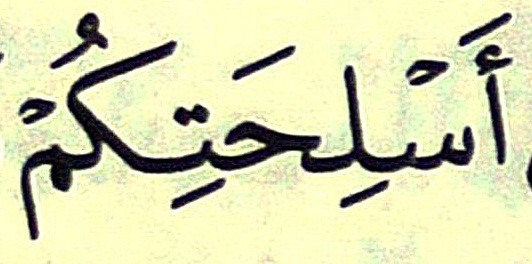 أَسْلِحَتِكُمْ